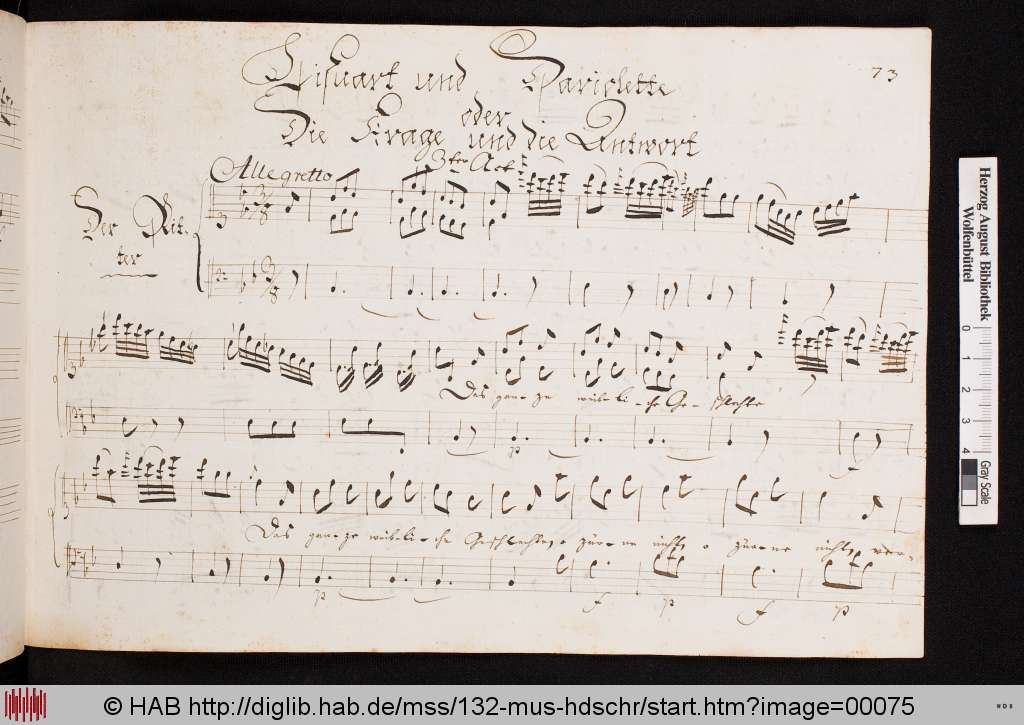 73
Lisuart und Dariolette
oder
Die Frage und die Antwort
3ter Act.
Allegretto
Der Rit-
ter
Das gan-ze weibli-che Ge-schlecht
p
Das gan-ze weibli-che Geschlecht, o zür-ne nicht, o zür-ne nicht, ver-
p f p f p
Herzog August Bibliothek
Wolfenbüttel
0 1 2 3 4
Gray Scale
© HAB http://diglib.hab.de/mss/132-mus-hdschr/start.htm?image=00075